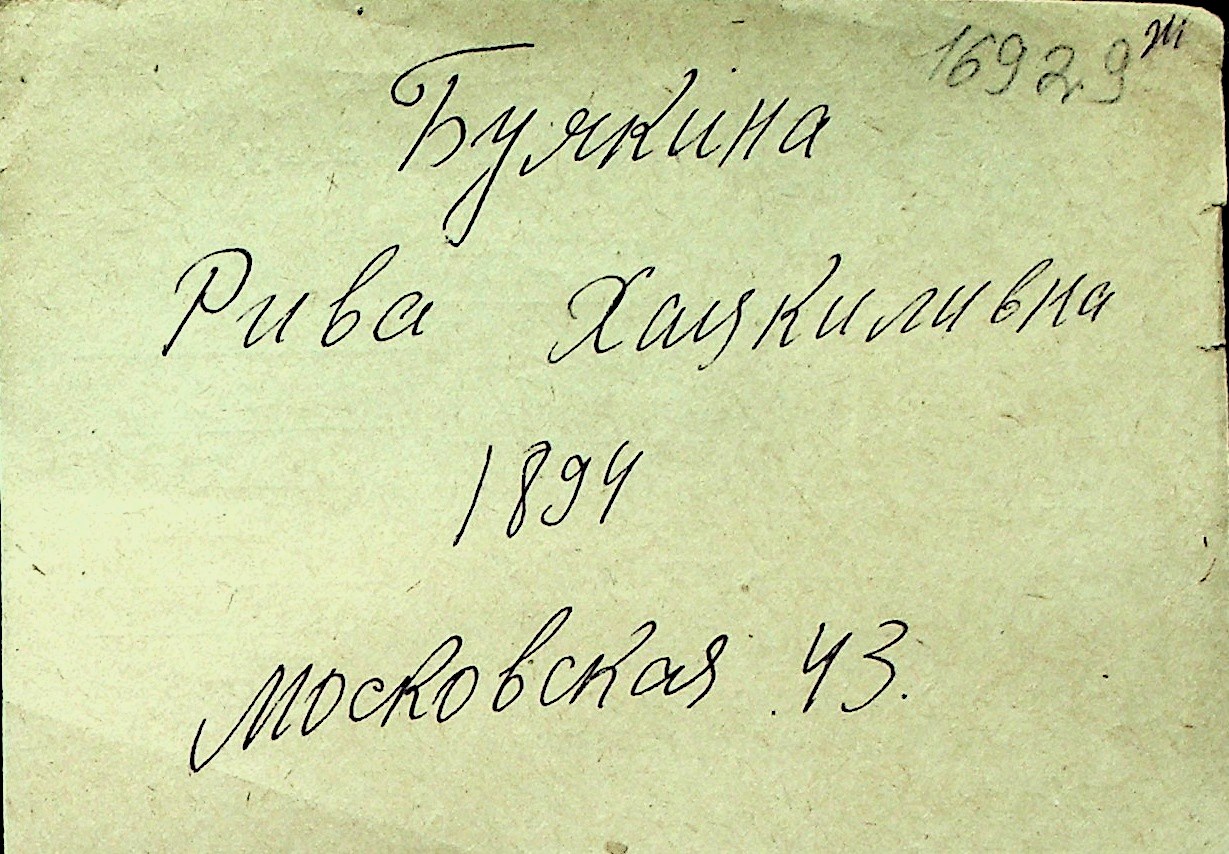 16929
Буякина
Рива Хацкиливна
1894
Московская 43.